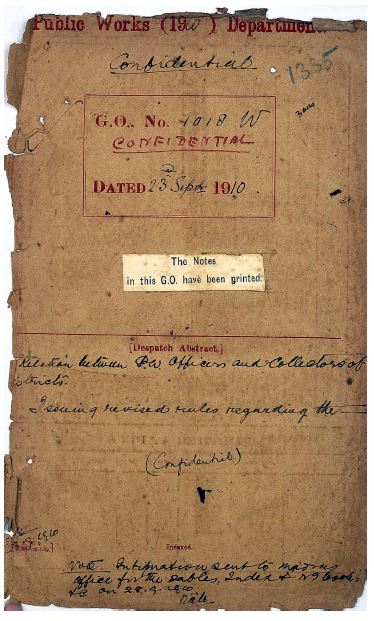 Public Works (190 ) Department.
Confidential.
1385
G.O., No. 1018 W
CONFIDENTIAL
DATED 23 Septr 1910
The Notes
in this G.O. have been printed.
[Despatch Abstract.]
Relation between P.W Officers and Collectors of
Issuing revised rules regarding the
(Confidential)
1910
Indexed.
Note. Intimation sent to madras
office for the tables, Index &
&c on 28.9.1910